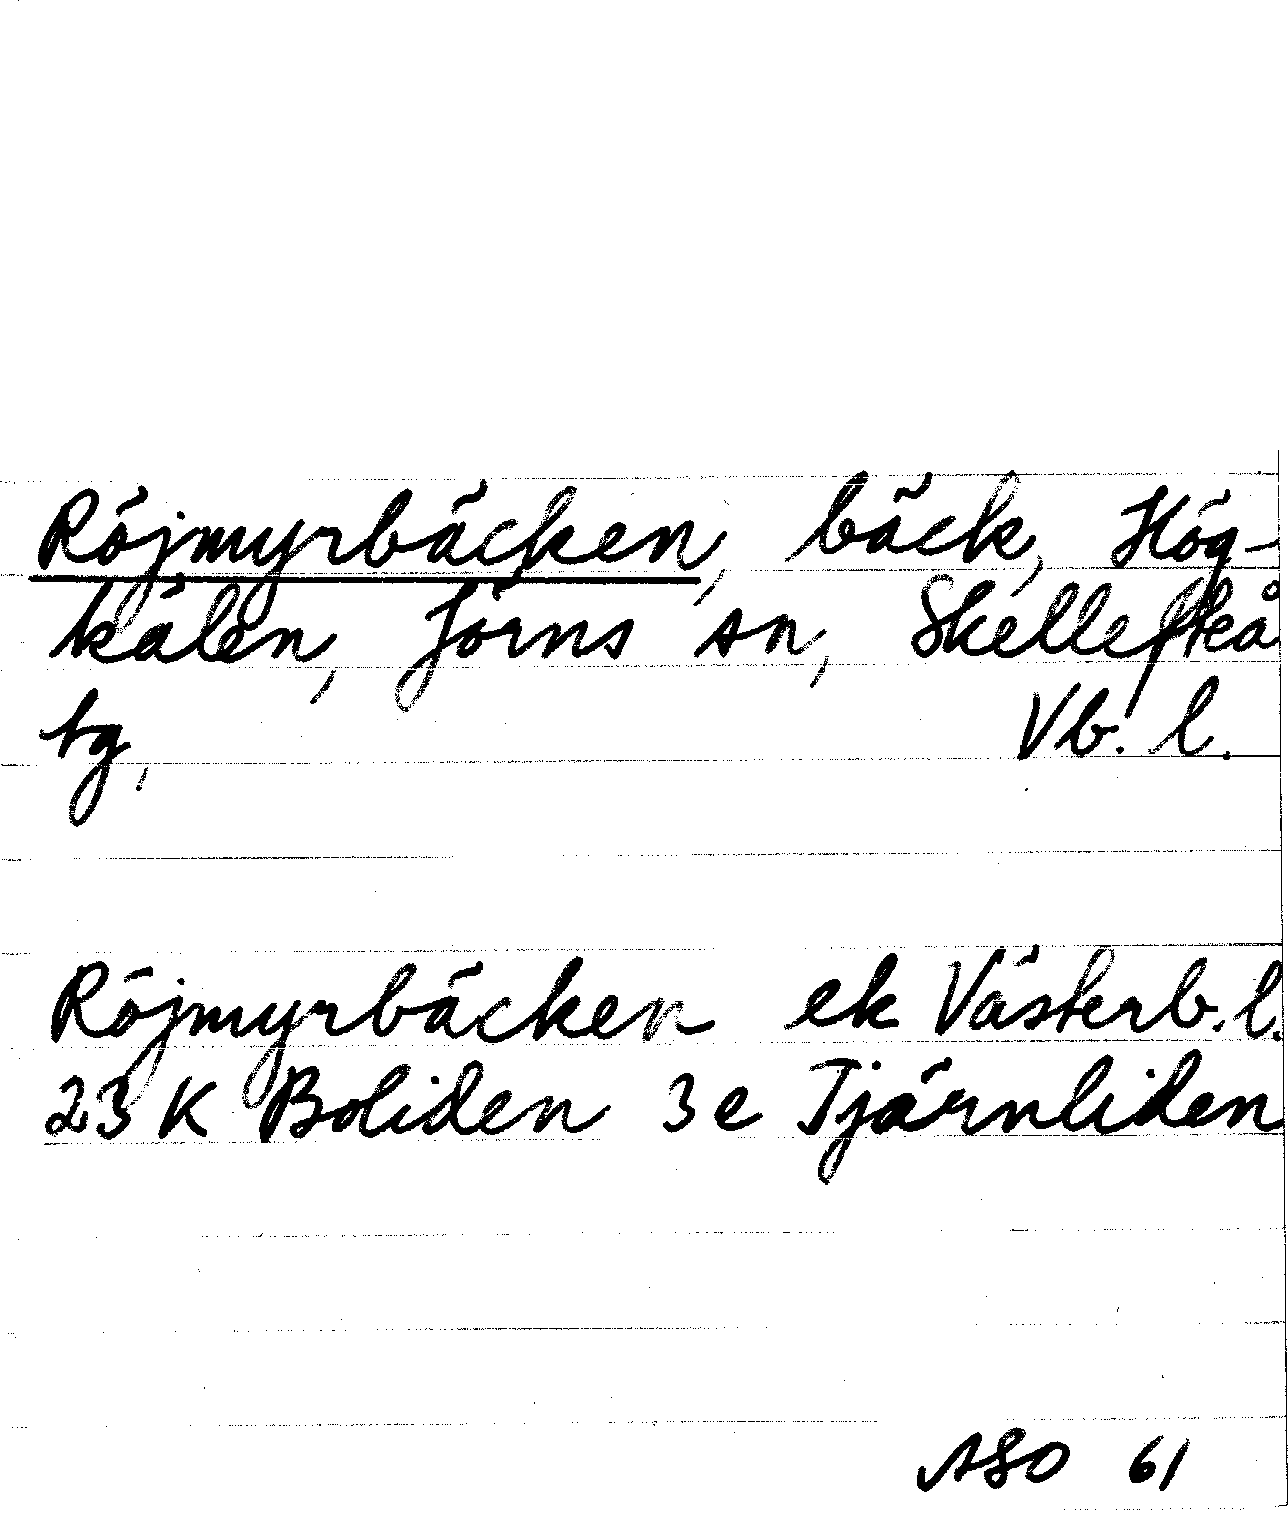 Röjmyrbäcken, bäck, Hög-
kälen, Jörns sn, Skellefteå
tg, Vb. l.
Röjmyrbäcken ek Västerb. l.
23 K Boliden 3e Tjärnliden
ASO 61